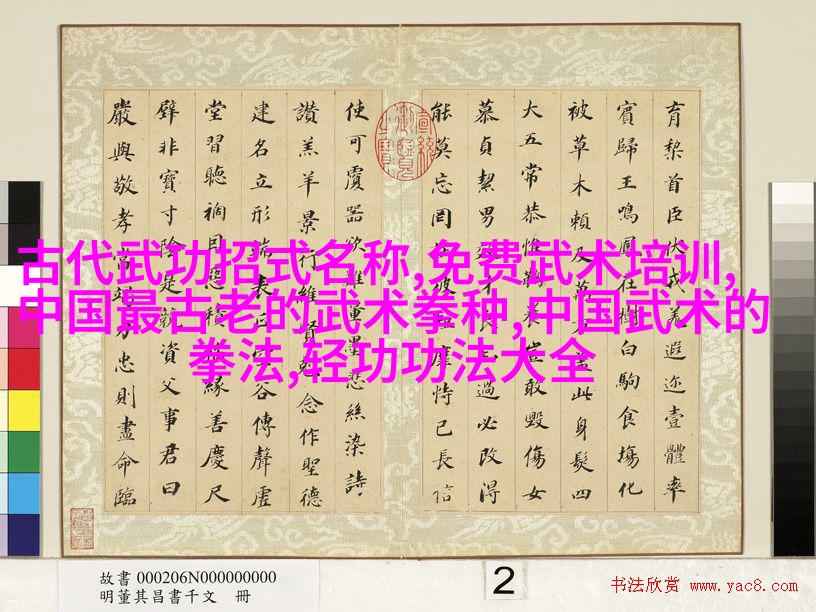 育黎首臣伏戎羌遐迩壹體率
賓歸王鳴鳳在樹白駒食場化
被草木賴及萬方蓋此身髮四
大五常恭惟鞠養豈敢毀傷女
慕貞絜男效才良知過必改得
能莫忘罔談彼短靡恃己長信
使可覆器欲難量墨悲絲染詩
讚羔羊景行維賢剋念作聖德
建名立形端表正空谷傳聲虛
堂習聽禍因惡積福緣善慶尺
璧非寶寸陰是競資父事君曰
嚴與敬孝當竭力忠則盡命臨
宣統御覽之寶
古代武功招式名称,免费武术培训,
中国最古老的武术拳种,中国武术的
拳法,轻功功法大全
故書 000206N000000000
明董其昌書千文 冊
2
书法欣赏 www.yac8.com